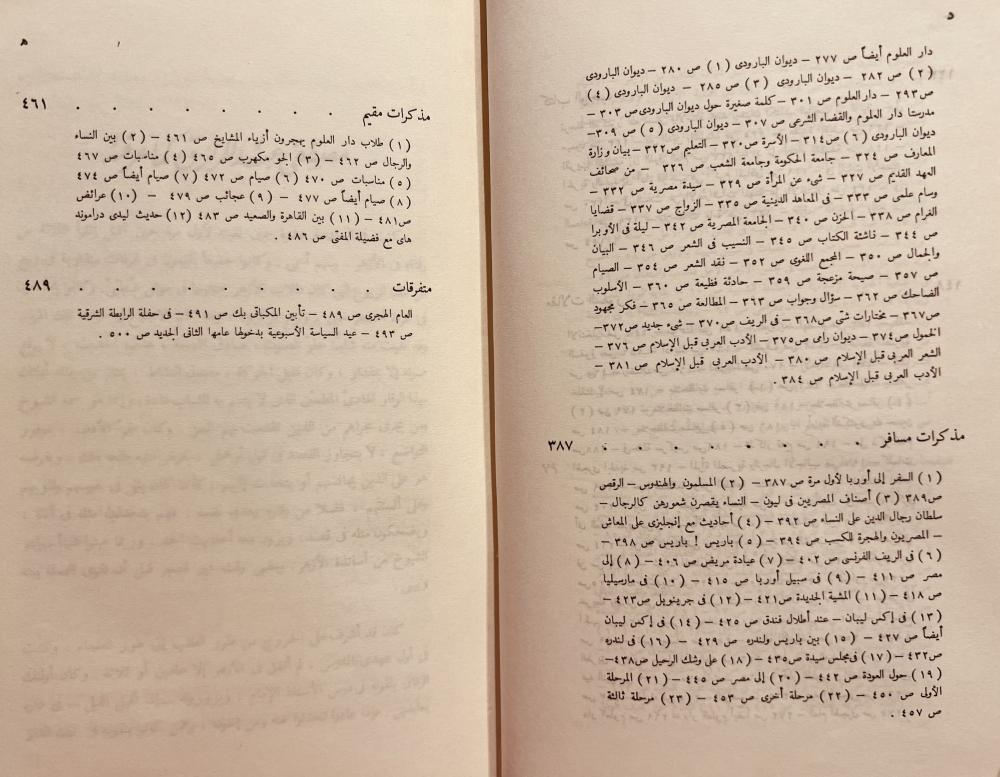 د
دار العلوم أيضاً ص ٢٧٧ – ديوان البارودى (١) ص ٢٨٠ – ديوان البارودى
(٢) ص ٢٨٢ – ديوان البارودى (٣) ص ٢٨٥ – ديوان البارودى (٤)
ص٢٩٣ – دار العلوم ص ٣٠١ – كلمة صغيرة حول ديوان البارودى ص ٣٠٣ –
مدرستا دار العلوم والقضاء الشرعى ص ٣٠٧ – ديوان البارودى (٥) ص ٣٠٩–
ديوان البارودى (٦) ص٣١٤ – الأسرة ص٣٢٠ – التعليم ص٣٢٢ – بيان وزارة
المعارف ص ٣٢٤ – جامعة الحكومة وجامعة الشعب ص ٣٢٦ – من صحائف
العهد القديم ص ٣٢٧ – شىء عن المرأة ص ٣٢٩ – سيدة مصرية ص ٣٣٢ –
وسام علمى ص ٣٣٣ – فى المعاهد الدينية ص ٣٣٥ – الزواج ص ٣٣٧ – قضايا
الغرام ص ٣٣٨ – الحزن ص ٣٤٠ – الجامعة المصرية ص ٣٤٢ – ليلة فى الأوبرا
ص ٣٤٤ – فاشئة الكتاب ص ٣٤٥ – النسيب فى الشعر ص ٣٤٦ – البيان
والجمال ص ٣٥٠ – المجمع اللغوى ص ٣٥٢ – نقد الشعر ص ٣٥٤ – الصيام
ص ٣٥٧ – صيحة مزعجة ص ٣٥٩ – حادثة فظيعة ص ٣٦٠ – الأسلوب
الضاحك ص ٣٦٢ – سؤال وجواب ص ٣٦٣ – المطالعة ص ٣٦٥ – فكر مجهود
ص٣٦٧ – مختارات شتى ص٣٦٨ – فى الريف ص٣٧٠ – شىء جديد ص٣٧٢–
الخمول ص٣٧٤ – ديوان رامى ص٣٧٥ – الأدب العربى قبل الإسلام ص ٣٧٦ –
الشعر العربى قبل الإسلام ص ٣٨٠ – الأدب العربى قبل الإسلام ص ٣٨١ –
الأدب العربى قبل الإسلام ص ٣٨٤ .
مذكرات مسافر . . . . . . . . ٣٨٧
(١) السفر إلى أوربا لأول مرة ص ٣٨٧ – (٢) المسلمون والهندوس – الرقص
ص٣٨٩ (٣) أصناف المصريين فى ليون – النساء يقصرن شعورهن كالرجال –
سلطان رجال الدين على النساء ص ٣٩٢ – (٤) أحاديث مع إنجليزى على المعاش
– المصريون والهجرة للكسب ص ٣٩٤ – (٥) باريس ! باريس ص ٣٩٨ –
(٦) فى الريف الفرنسى ص ٤٠٢ – (٧) عيادة مريض ص ٤٠٦ – (٨) إلى
مصر ص ٤١١ – (٩) فى سبيل أوربا ص ٤١٥ – (١٠) فى مارسيليا
ص ٤١٨ – (١١) المشية الجديدة ص٤٢١ – (١٢) فى جرينوبل ص٤٢٣ –
(١٣) فى إكس ليبان – عند أطلال فندق ص ٤٢٥ – (١٤) فى إكس ليبان
أيضاً ص ٤٢٧ – (١٥) بين باريس ولندره ص ٤٢٩ – (١٦) فى لندره
ص٤٣٢ – (١٧) فى مجلس سيدة ص٤٣٥ – (١٨) على وشك الرحيل ص٤٣٨–
(١٩) حول العودة ص ٤٤٢ – (٢٠) إلى مصر ص ٤٤٥ – (٢١) المرحلة
الأولى ص ٤٥٠ – (٢٢) مرحلة أخرى ص ٤٥٣ – (٢٣) مرحلة ثالثة
ص ٤٥٧ .
ﻫ
مذكرات مقيم . . . . . . . . ٤٦١
(١) طلاب دار العلوم يهجرون أزياء المشايخ ص ٤٦١ – (٢) بين النساء
والرجال ص ٤٦٢ – (٣) الجو مكهرب ص ٤٦٥ (٤) مناسبات ص ٤٦٧
(٥) مناسبات ص ٤٧٠ (٦) صيام ص ٤٧٢ (٧) صيام أيضاً ص ٤٧٤
(٨) صيام أيضاً ص ٤٧٧ – (٩) عجائب ص ٤٧٩ – (١٠) عرائض
ص٤٨١ – (١١) بين القاهرة والصعيد ص ٤٨٣ (١٢) حديث ليدى دراموند
هاى مع فضيلة المفتى ص ٤٨٦ .
متفرقات . . . . . . . . ٤٨٩
العام الهجرى ص ٤٨٩ – تأبين المكباتى بك ص ٤٩١ – فى حفلة الرابطة الشرقية
ص ٤٩٣ – عيد السياسة الأسبوعية بدخولها عامها الثانى الجديد ص ٥٠٠ .